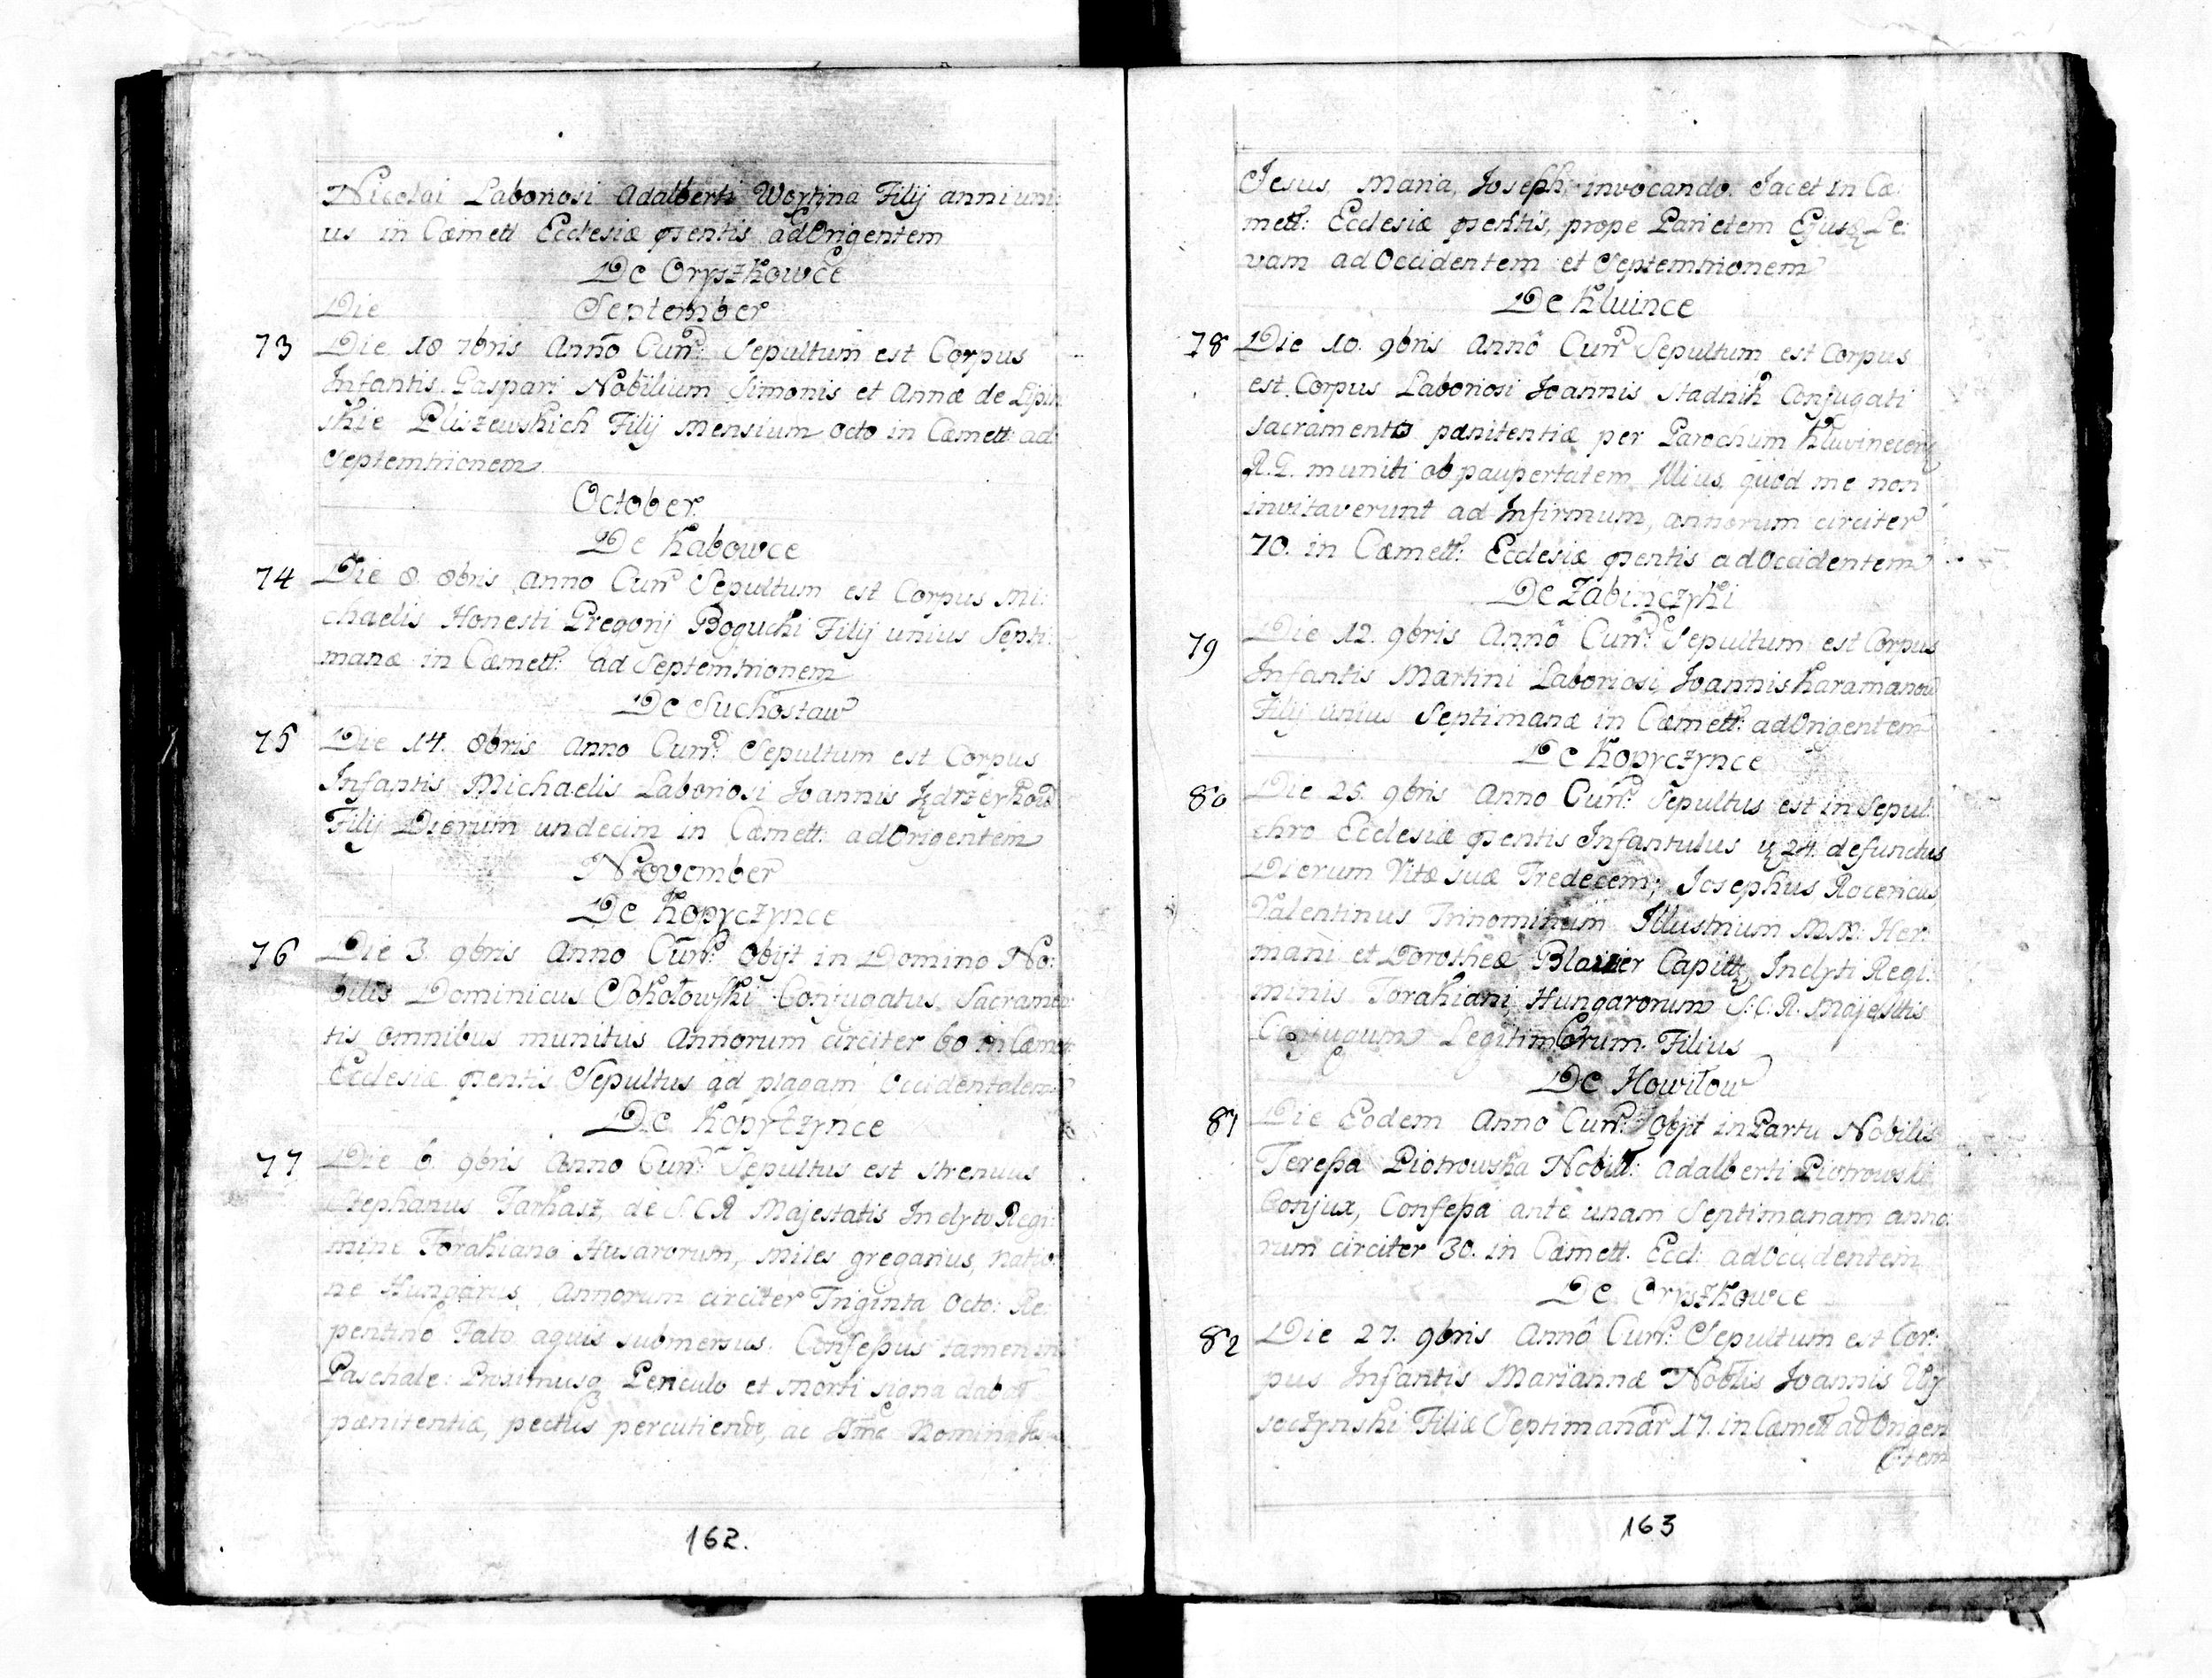 Nicolai Laboriosi Adalberti Wortina Filij anni uni:
us in Cæmett Ecclesiæ pntis ad Origentem
De Oryszkowce
Die September
73 Die 18 7bris Anno Curr: Sepultum est Corpus
Infantis Gaspari Nobilium Simonis et Annæ de Lipin
skie Pliszewskich Filij Mensium octo in Cæmett: ad
Septemtrionem
October
De Kabowce
74 Die 8. 8bris Anno Curr: Sepultum est Corpus Mi:
chaelis Honesti Gregorij Bogucki Filij unius Septi:
manæ in Cæmett: ad Septemtrionem
De Suchostaw
75 Die 14. 8bris Anno Curr: Sepultum est Corpus
Infantis Michaelis Laboriosi Joannis
Filij Dierum undecim in Cæmett: ad Origentem
November
De Kopyczynce
76 Die 3. 9bris Anno Curr: Obijt in Domino No:
bilis Dominicus Sokołowski Conjugatus Sacramen
tis omnibus munitus Annorum circiter 60 in Cæmett:
Ecclesiæ pentis Sepultus ad plagam Occidentalem
De Kopyczynce
77 Die 6. 9bris Anno Curr: Sepultus est strenuus
Stephanus Farkasz, de S.C.R. Majestatis Inclyto Regi:
mine Torakiano Husarorum, Miles gregarius, natio:
ne Hungarus, Annorum circiter Triginta Octo: Re:
pentino Fato aquis submersus. Confeßus tamen in
Paschate: Proximusq Periculo et morti signa dabat
pænitentiæ, pectus percutiendo, ac Ssma Nomina
162.
Jesus, Maria, Joseph, invocando. Jacet in Cæ
mett: Ecclesiæ pentis, prope Parietem Ejusq Le:
vam ad Occidentem et Septemtrionem
De Kluince
78 Die 10. 9bris Anno Curr: Sepultum est Corpus
est Corpus Laboriosi Joannis Stadnik Conjugati
Sacramento pænitentiæ per Parochum
R.G. muniti ob paupertatem Illius, quod me non
invitaverunt ad Infirmum, annorum circiter
70. in Cæmett: Ecclesiæ pentis ad Occidentem
De Zabinczyki
79 Die 12. 9bris Anno Curr: Sepultum est Corpus
Infantis Martini Laboriosi Joannis Karamanow
Filij unius Septimanæ in Cæmett: ad Origentem
De Kopyczynce
80 Die 25. 9bris Anno Curr: Sepultus est in Sepul:
chro Ecclesiæ pentis Infantulus 24. defunctus
Dierum Vitæ suæ Tredecem; Josephus
Valentinus Trinominum Illustrium M.M: Her:
mani et Dorotheæ Blaiier Capitt, Inclyti Regi:
minis Torakiani, Hungarorum S.C.R. Majesttis
Conjugum Legitimorum Filius
De Howiłow
81 Die Eodem Anno Curr: Obijt in Partu Nobilis
Tereßa Piotrowska Nobill: Adalberti Piotrowski
Conjux, Confeßa ante unam Septimanam anno:
rum circiter 30. in Cæmett. Eccl: ad Occidentem
De Oryszkowce
82 Die 27. 9bris Anno Curr: Sepultum est Cor:
pus Infantis Mariannæ Noblis Joannis Wy
soczynski Filiæ Septimanar 17. in Cæmett ad Origen
tem
163